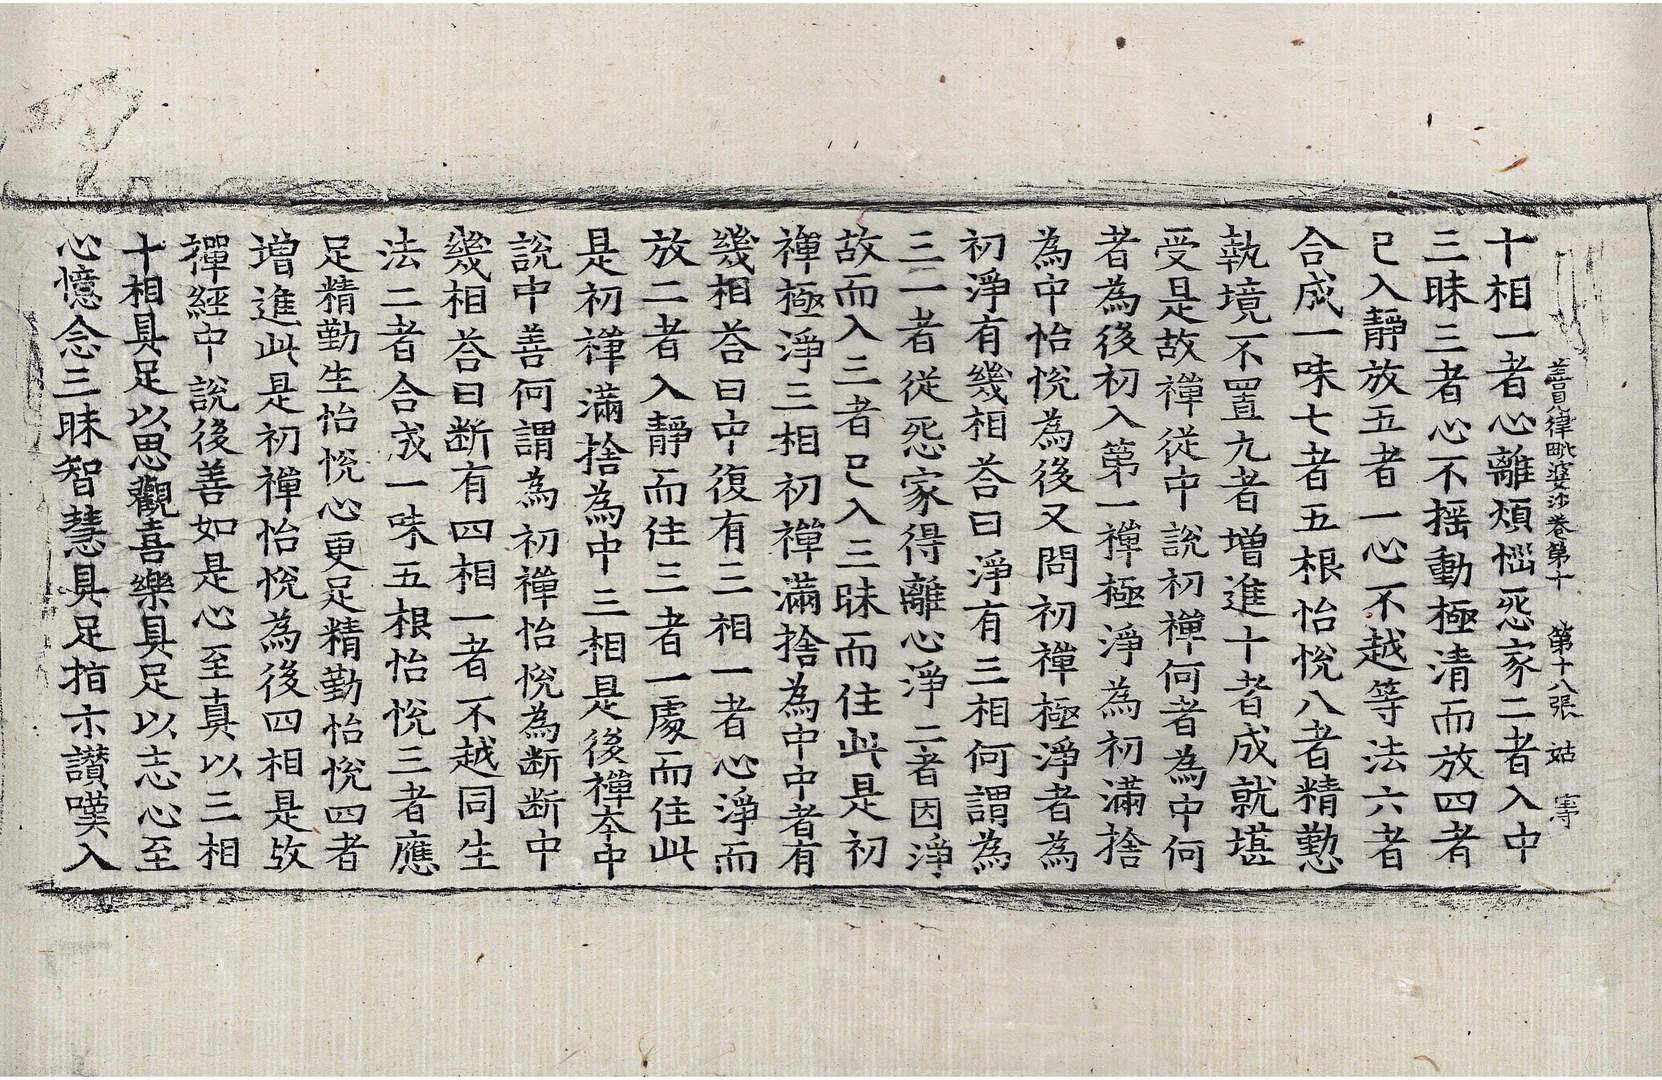 善見律毗婆沙卷第十 第十八張 姑
十相一者心離煩惱惡家二者入中
三昧三者心不搖動極清而放四者
已入靜放五者一心不越等法六者
合成一味七者五根怡悅八者精懃
執境不置九者增進十者成就堪
受是故禪從中說初禪何者為中何
者為後初入第一禪極淨為初滿捨
為中怡悅為後又問初禪極淨者為
初淨有幾相荅曰淨有三相何謂為
三一者從惡家得離心淨二者因淨
故而入三者已入三昧而住此是初
禪極淨三相初禪滿捨為中中者有
幾相荅曰中復有三相一者心淨而
放二者入靜而住三者一處而住此
是初禪滿捨為中三相是後禪夲中
說中善何謂為初禪怡悅為断断中
幾相荅曰断有四相一者不越同生
法二者合成一味五根怡悅三者應
足精勤生怡悅心更足精勤怡悅四者
增進此是初禪怡悅為後四相是故
禪經中說後善如是心至真以三相
十相具足以思觀喜樂具足以志心至
心憶念三昧智慧具足指示讃嘆入